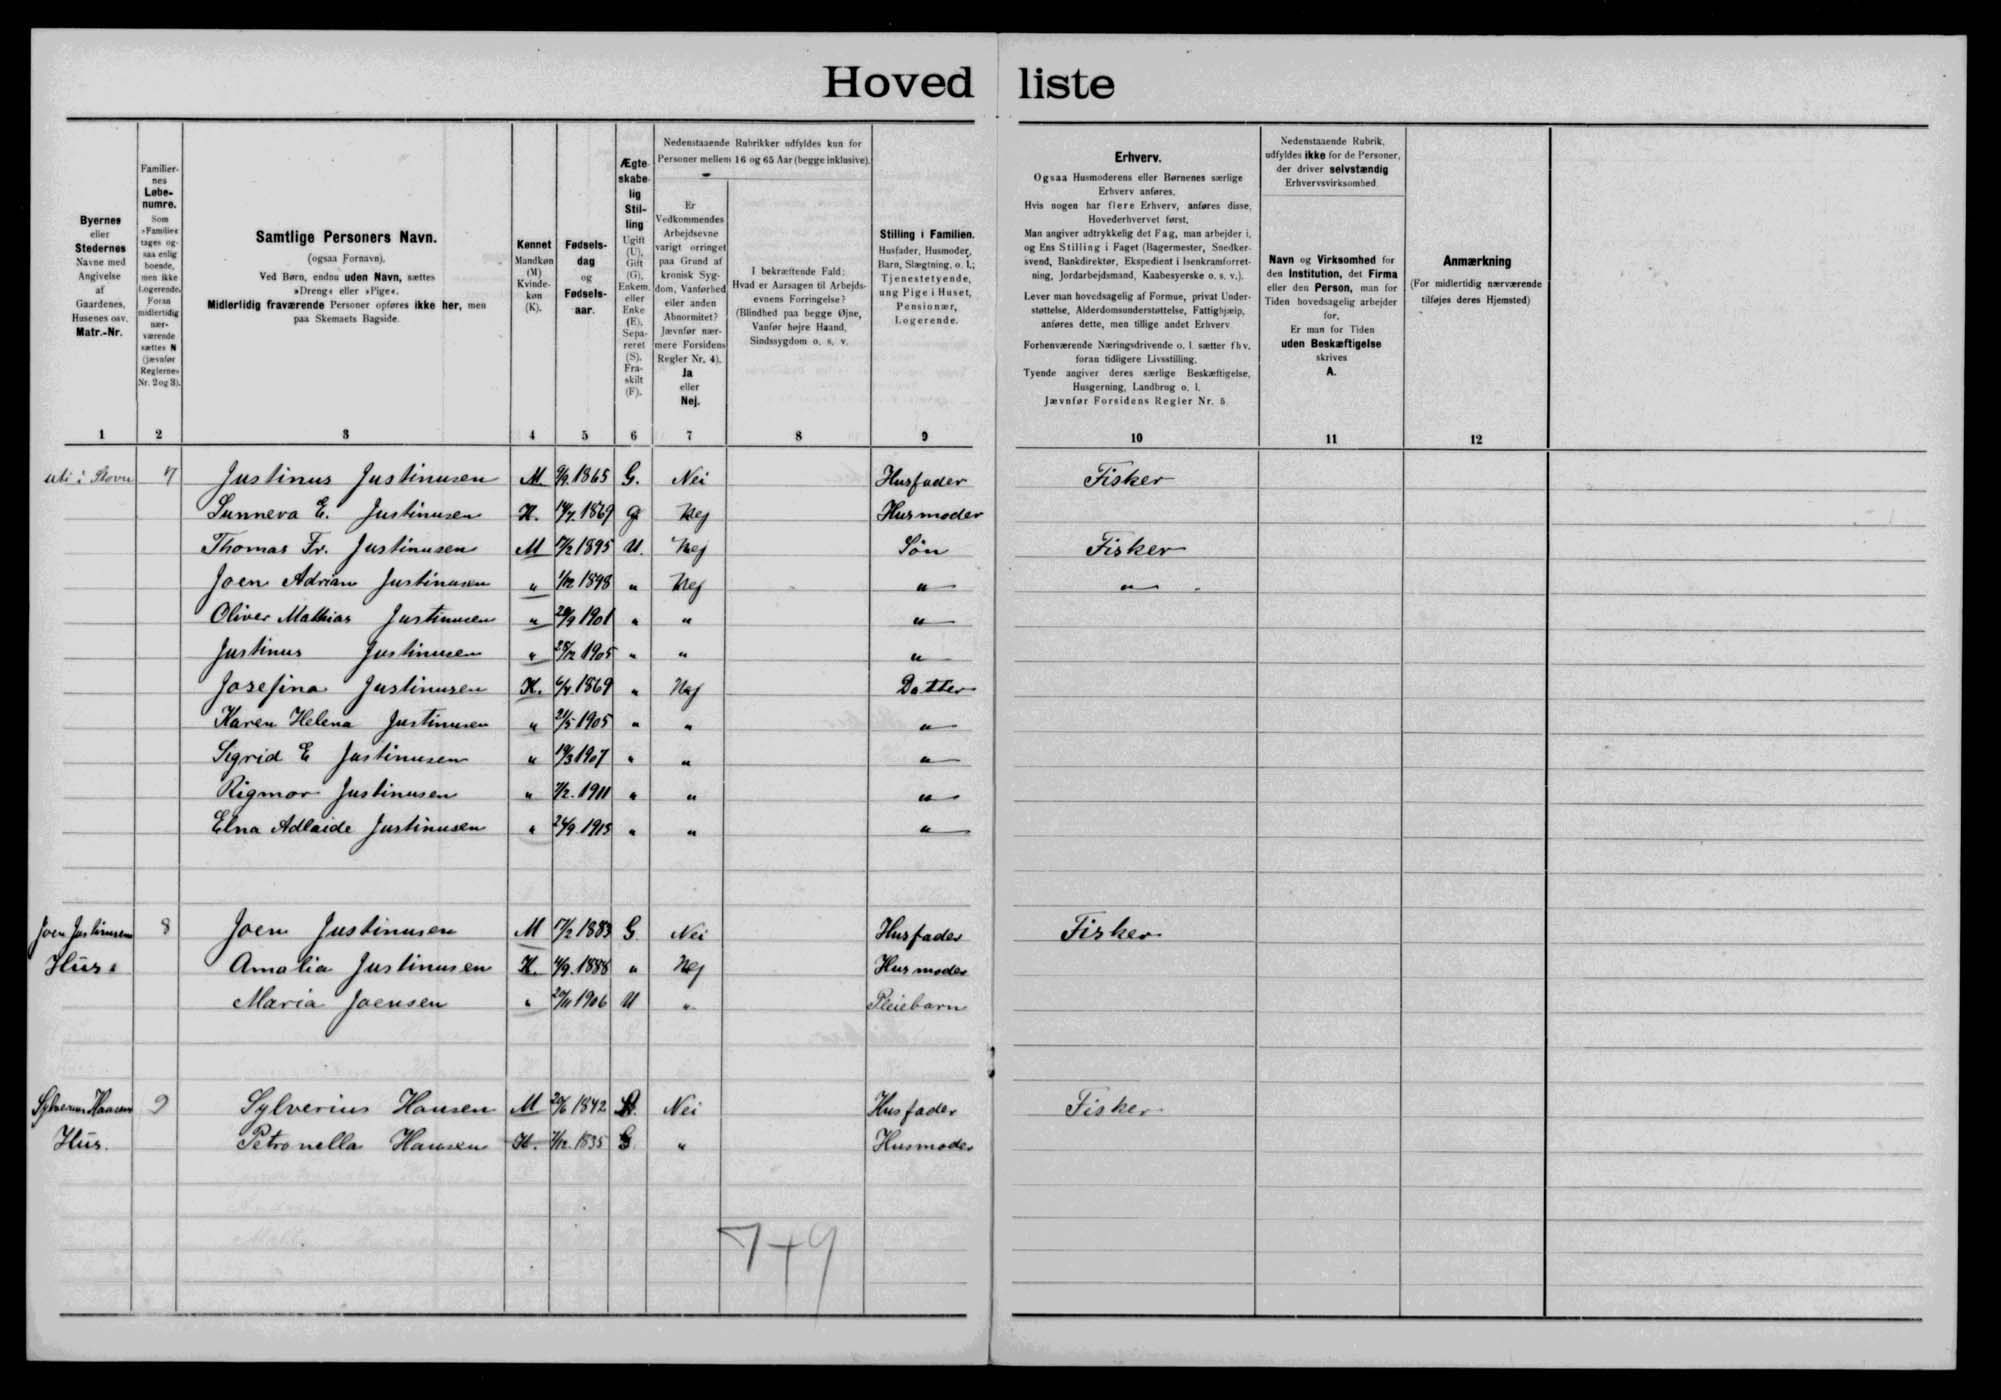 Hovedliste
Byernes
eller
Stedernes
Navne med
Angivelse
af
Gaardenes,
Husenes osv.
Matr.-Nr.
Familier-
nes
Løbe-
numre.
Som
»Familie«
tages og-
saa enlig
boende,
men ikke
Logerende.
Foran
midlertidig
nær-
værende
sættes N
(jævnfør
Reglernes
Nr. 2 og 3).
Samtlige Personers Navn.
(ogsaa Fornavn).
Ved Børn, endnu uden Navn, sættes
»Dreng« eller »Pige«.
Midlertidig fraværende Personer opføres ikke her, men
paa Skemaets Bagside.
Kønnet
Mandkøn
(M)
Kvinde-
køn
(K).
Fødsels-
dag
og
Fødsels-
aar.
Ægte-
skabe-
lig
Stil-
ling
Ugift
(U),
Gift
(G),
Enkem.
eller
Enke
(E),
Sepa-
reret
(S).
Fra-
skilt
(F).
Nedenstaaende Rubrikker udfyldes kun for
Personer mellem 16 og 65 Aar (begge inklusive).
Er
Vedkommendes
Arbejdsevne
varigt forringet
paa Grund af
kronisk Syg-
dom, Vanførhed
eller anden
Abnormitet?
Jævnfør nær-
mere Forsidens
Regler Nr. 4).
Ja
eller
Nej.
I bekræftende Fald:
Hvad er Aarsagen til Arbejds-
evnens Forringelse?
(Blindhed paa begge Øjne,
Vanfør højre Haand,
Sindssygdom o. s. v.
Stilling i Familien.
Husfader, Husmoder,
Barn, Slægtning, o. l.;
Tjenestetyende,
ung Pige i Huset,
Pensionær,
Logerende.
Erhverv.
Ogsaa Husmoderens eller Børnenes særlige
Erhverv anføres.
Hvis nogen har flere Erhverv, anføres disse,
Hovederhvervet først.
Man angiver udtrykkelig det Fag, man arbejder i,
og Ens Stilling i Faget (Bagermester, Snedker-
svend, Bankdirektør, Ekspedient i Isenkramforret-
ning, Jordarbejdsmand, Kaabesyerske o. s. v.).
Lever man hovedsagelig af Formue, privat Under-
støttelse, Alderdomsunderstøttelse, Fattighjælp,
anføres dette, men tillige andet Erhverv
Forhenværende Næringsdrivende o. l. sætter fhv.
foran tidligere Livsstilling.
Tyende angiver deres særlige Beskæftigelse,
Husgerning, Landbrug o. l.
Jævnfør Forsidens Regler Nr. 5.
Nedenstaaende Rubrik,
udfyldes ikke for de Personer,
der driver selvstændig
Erhvervsvirksomhed.
Navn og Virksomhed for
den Institution, det Firma
eller den Person, man for
Tiden hovedsagelig arbejder
for.
Er man for Tiden
uden Beskæftigelse
skrives
A.
Anmærkning
(For midlertidig nærværende
tilføjes deres Hjemsted)
1 2 3 4 5 6 7 8 9 10 11 12
uti i Stovu 7 Justinus Justinusen M 9/9.1865 G. Nei Husfader Fisker
Sunneva E. Justinusen K. 14/7.1869 G Nej Husmoder
Thomas Fr. Justinusen M 17/2 1895 U. Nej Søn Fisker
Joen Adrian Justinusen " 1/12 1898 " Nej " "
Oliver Mathias Justinusen " 29/9 1901 " " "
Justinus Justinusen " 28/12 1905 " " "
Josefina Justinusen K. 6/4.1869 " Nej Datter
Karen Helena Justinusen " 21/5 1905 " " "
Sigrid E Justinusen " 19/3 1907 " " "
Rigmor Justinusen " 7/2.1911 " " "
Elna Adlaide Justinusen " 24/9.1915 " " "
Joen Justinusens 8 Joen Justinusen M 17/2 1883 G. Nei Husfader Fisker
Hus. Amalia Justinusen K. 4/9.1888 " Nej Husmoder
Maria Joensen " 20/11 1906 U " Pleiebarn
Sylverius Hansens 9 Sylverius Hansen M 20/6 1842 G. Nei Husfader Fisker
Hus. Petronella Hansen K. 7/12.1835 G " Husmoder
7+9